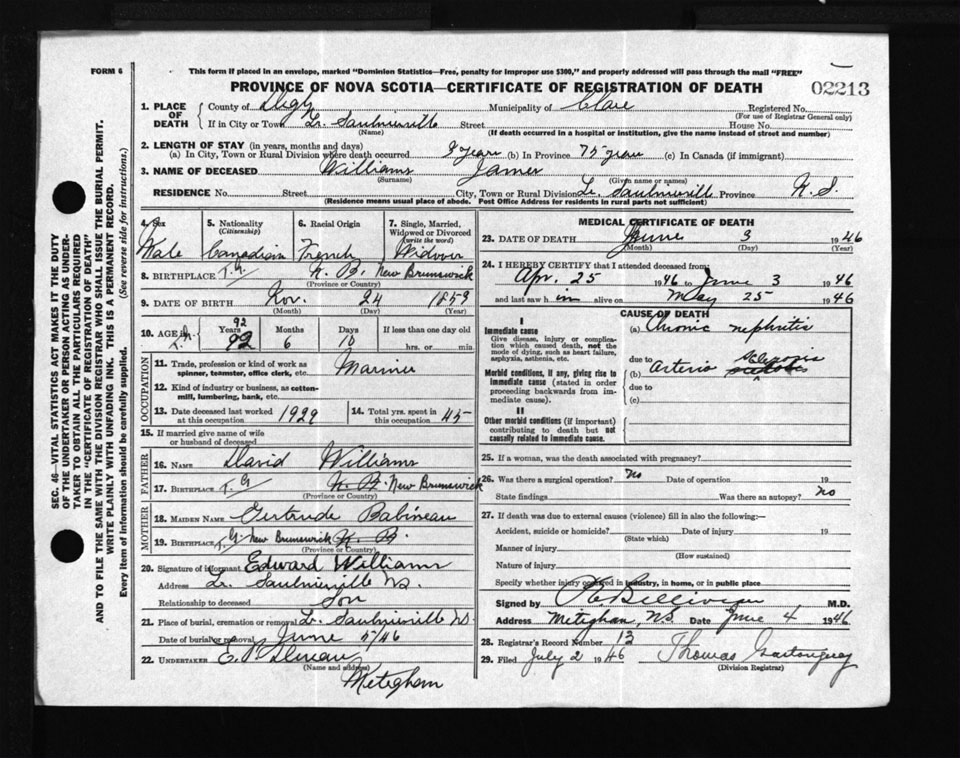 FORM 6
This form if placed in an envelope, marked "Dominion Statistics—Free, penalty for improper use $300," and properly addressed will pass through the mail "FREE"
PROVINCE OF NOVA SCOTIA—CERTIFICATE OF REGISTRATION OF DEATH
02213
1. PLACE OF DEATH County of Digby Municipality of Clare Registered No.
(For use of Registrar General only)
If in City or Town L. Saulnierville Street House No.
(Name) (If death occurred in a hospital or institution, give the name instead of street and number)
2. LENGTH OF STAY (in years, months and days)
(a) In City, Town or Rural Division where death occurred years (b) In Province 75 years (c) In Canada (if immigrant)
3. NAME OF DECEASED Williams James
(Surname) (Given name or names)
RESIDENCE No. Street City, Town or Rural Division L. Saulnierville Province N.S.
(Residence means usual place of abode. Post Office Address for residents in rural parts not sufficient)
4. Sex Male
5. Nationality (Citizenship) Canadian
6. Racial Origin French
7. Single, Married, Widowed or Divorced (write the word) Widower
8. BIRTHPLACE T.G. N. B. New Brunswick
(Province or Country)
9. DATE OF BIRTH Nov. 24 1853
(Month) (Day) (Year)
10. AGE Years 92 92 Months 6 Days 10 If less than one day old
hrs. or min.
OCCUPATION
11. Trade, profession or kind of work as spinner, teamster, office clerk, etc. Mariner
12. Kind of industry or business, as cotton-mill, lumbering, bank, etc.
13. Date deceased last worked at this occupation 1929
14. Total yrs. spent in this occupation 45
15. If married give name of wife or husband of deceased
FATHER
16. NAME David Williams
17. BIRTHPLACE T.G N. B. New Brunswick
(Province or Country)
MOTHER
18. MAIDEN NAME Gertrude Babineau
19. BIRTHPLACE T.G New Brunswick N. B.
(Province or Country)
20. Signature of informant Edward Williams
Address L. Saulnierville NS.
Relationship to deceased Son
21. Place of burial, cremation or removal L. Saulnierville NS
Date of burial or removal June 5/46
22. UNDERTAKER E.
(Name and address)
Meteghan
MEDICAL CERTIFICATE OF DEATH
23. DATE OF DEATH June 3 1946
(Month) (Day)
24. I HEREBY CERTIFY that I attended deceased from:
Apr. 25 1946 to June 3 1946
and last saw him alive on May 25 1946
CAUSE OF DEATH
I
Immediate cause
Give disease, injury or complication which caused death, not the mode of dying, such as heart failure, asphyxia, asthenia, etc.
(a) Chronic nephritis
due to
Morbid conditions, if any, giving rise to immediate cause (stated in order proceeding backwards from immediate cause).
(b) Arterio sclerosis
due to
(c)
II
Other morbid conditions (if important) contributing to death but not causally related to immediate cause.
25. If a woman, was the death associated with pregnancy?
26. Was there a surgical operation? No Date of operation 19
State findings Was there an autopsy? No
27. If death was due to external causes (violence) fill in also the following:—
Accident, suicide or homicide? Date of injury 19
(State which)
Manner of injury
(How sustained)
Nature of injury
Specify whether injury occurred in industry, in home, or in public place
Signed by M.D.
Address Meteghan, N.S. Date June 4 1946
28. Registrar's Record Number 13
29. Filed July 2 1946 Thomas
(Division Registrar)
SEC. 46—VITAL STATISTICS ACT MAKES IT THE DUTY
OF THE UNDERTAKER OR PERSON ACTING AS UNDER-
TAKER TO OBTAIN ALL THE PARTICULARS REQUIRED
IN THE "CERTIFICATE OF REGISTRATION OF DEATH"
AND TO FILE THE SAME WITH THE DIVISION REGISTRAR WHO SHALL ISSUE THE BURIAL PERMIT.
WRITE PLAINLY WITH UNFADING INK. THIS IS A PERMANENT RECORD.
Every item of information should be carefully supplied. (See reverse side for instructions.)